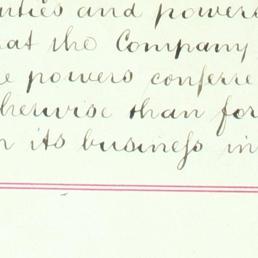 and powers
at the Company
powers conferre
than for
its business in